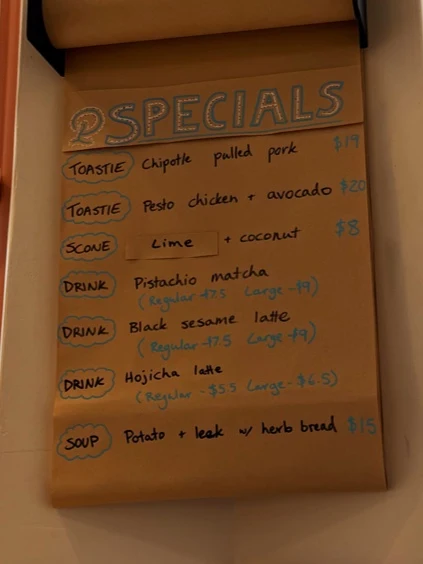 SPECIALS
TOASTIE Chipotle pulled pork $19
TOASTIE Pesto chicken + avocado $20
SCONE Lime + coconut $8
DRINK Pistachio matcha
(Regular -$7.5 Large -$9)
DRINK Black sesame latte
(Regular -$7.5 Large -$9)
DRINK Hojicha latte
(Regular - $5.5 Large - $6.5)
SOUP Potato + leek w/ herb bread $15